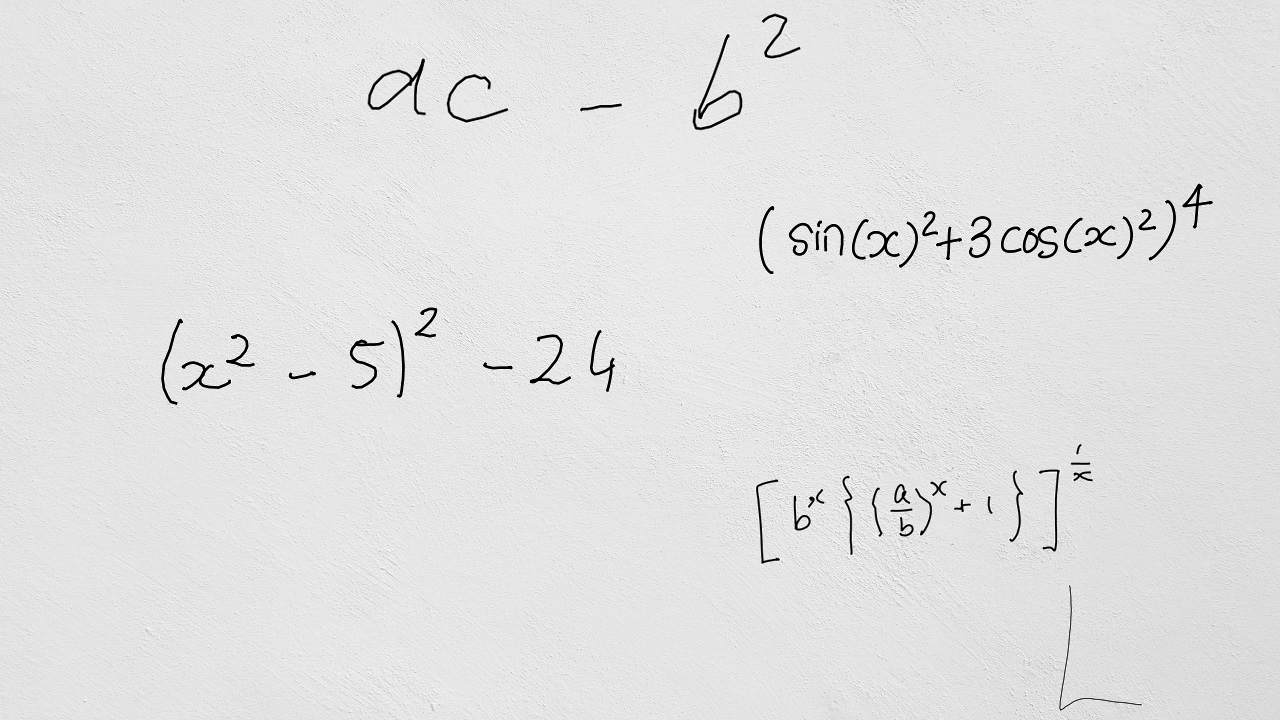 ac - b²
(sin(x)²+3cos(x)²)⁴
(x² - 5)² - 24
[b^x{(a/b)^x + 1}]^(1/x)
L